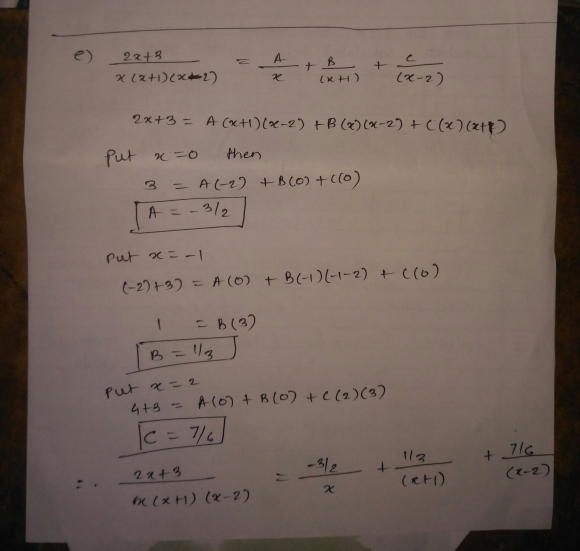 e) (2x+3)/(x(x+1)(x-2)) = A/x + B/(x+1) + C/(x-2)
2x+3 = A(x+1)(x-2) + B(x)(x-2) + C(x)(x+1)
Put x=0 then
3 = A(-2) + B(0) + C(0)
A = -3/2
Put x = -1
(-2)+3) = A(0) + B(-1)(-1-2) + C(0)
1 = B(3)
B = 1/3
Put x = 2
4+3 = A(0) + B(0) + C(2)(3)
C = 7/6
∴ (2x+3)/(x(x+1)(x-2)) = (-3/2)/x + (1/3)/(x+1) + (7/6)/(x-2)